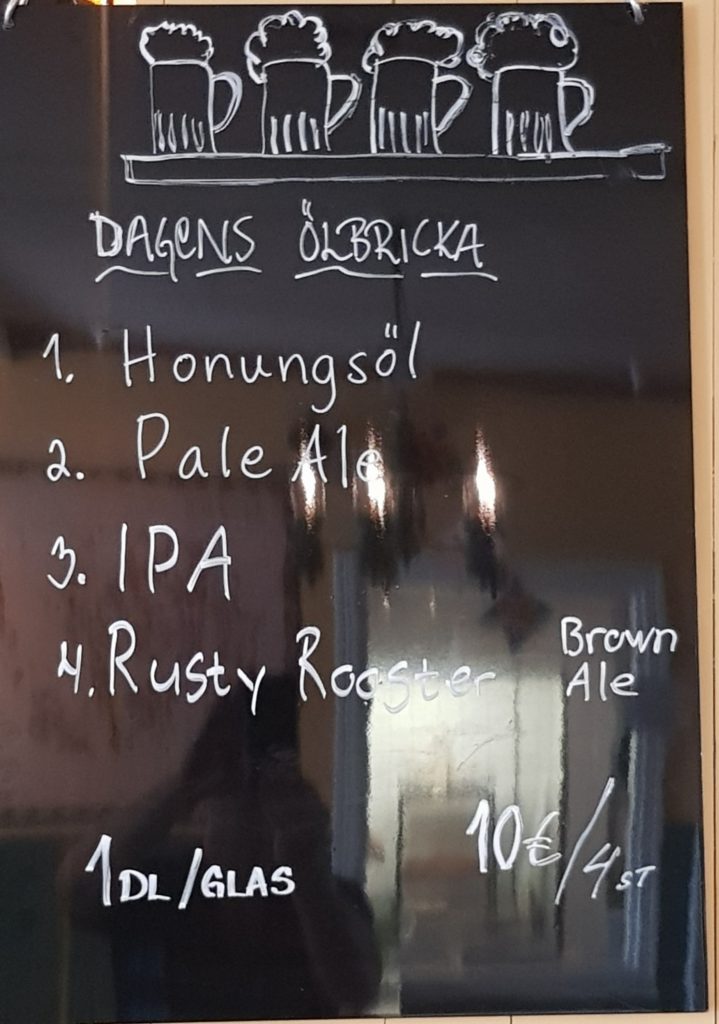 DAGENS ÖLBRICKA
1. Honungsöl
2. Pale Ale
3. IPA
4. Rusty Rooster Brown Ale
1 DL/GLAS 10€/4 ST